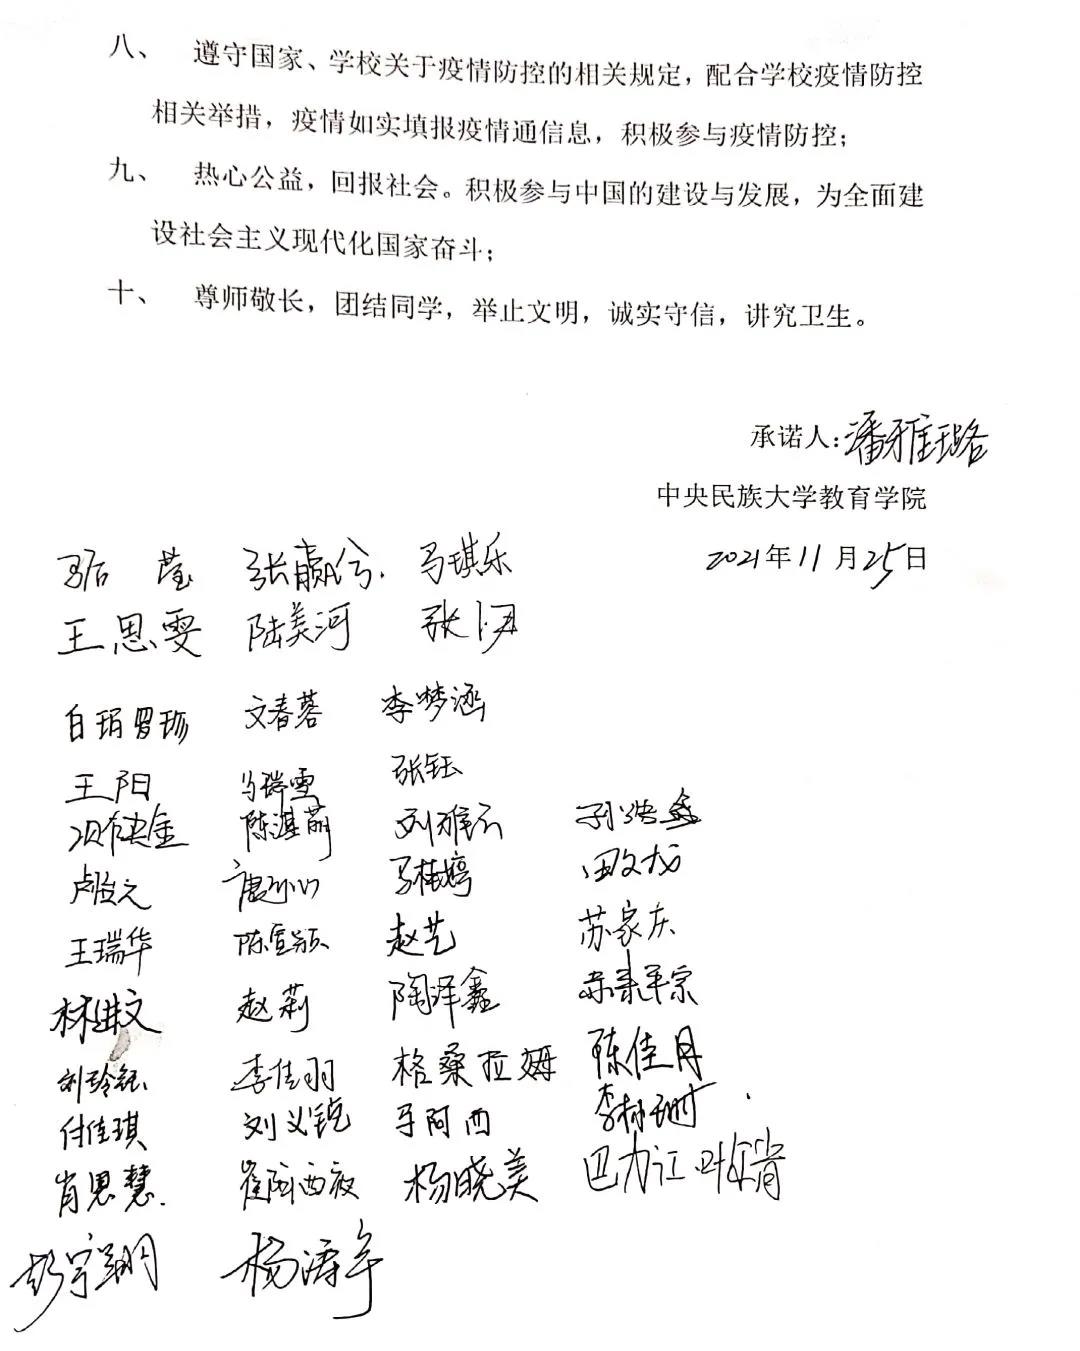 八、 遵守国家、学校关于疫情防控的相关规定，配合学校疫情防控
相关举措，疫情如实填报疫情通信息，积极参与疫情防控；
九、 热心公益，回报社会。积极参与中国的建设与发展，为全面建
设社会主义现代化国家奋斗；
十、 尊师敬长，团结同学，举止文明，诚实守信，讲究卫生。
承诺人：潘雅璐
中央民族大学教育学院
2021年11月25日
骆 莹 张赢兮 马琪乐
王思雯 陆美河 张
白玥罗珍 文春蓉 李梦涵
王阳 马瑞雪 张钰
陈湛萌 刘雅云 孙浩鑫
卢 唐 马桂婷 田文龙
王瑞华 陈宣颖 赵艺 苏家庆
林继文 赵莉 陶泽鑫
刘玲钰 李佳羽 格桑拉姆 陈佳月
付佳琪 刘义锐 马阿西 李
肖思慧 崔 杨晓美 巴力江·叶尔肯
彭宇翔 杨涛年